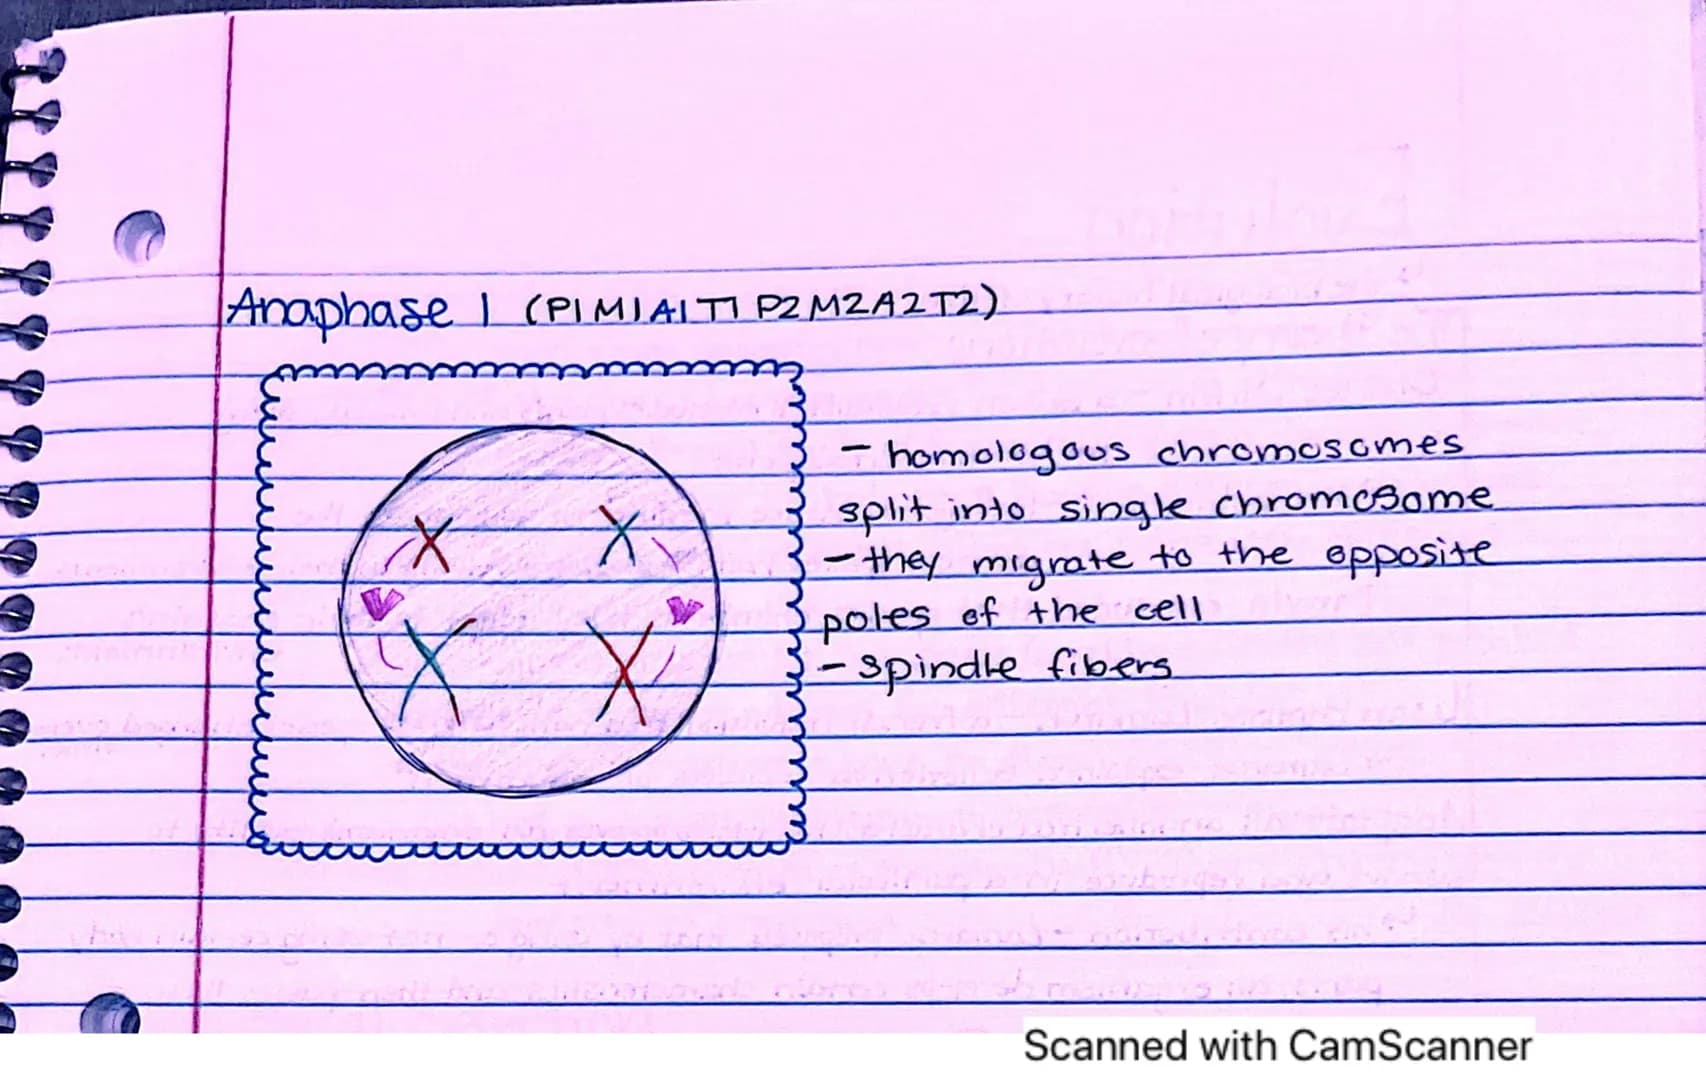 Anaphase 1 (P1M1A1T1P2M2A2T2)
- homologous chromosomes
split into single chromosome
- they migrate to the opposite
poles of the cell
- spindle fibers
Scanned with CamScanner